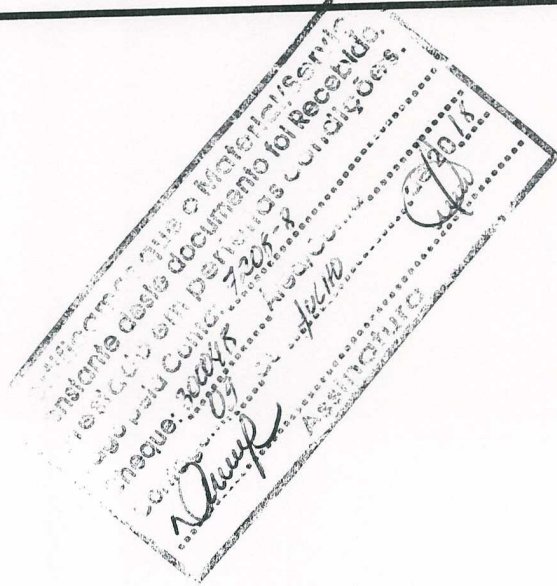 que o Material/Serviç
onstante deste documento foi Recebido,
restado em perfeitas condições.
ago pela Conta: 7205-8
heque:
09 de JULHO de 2018
Assinatura